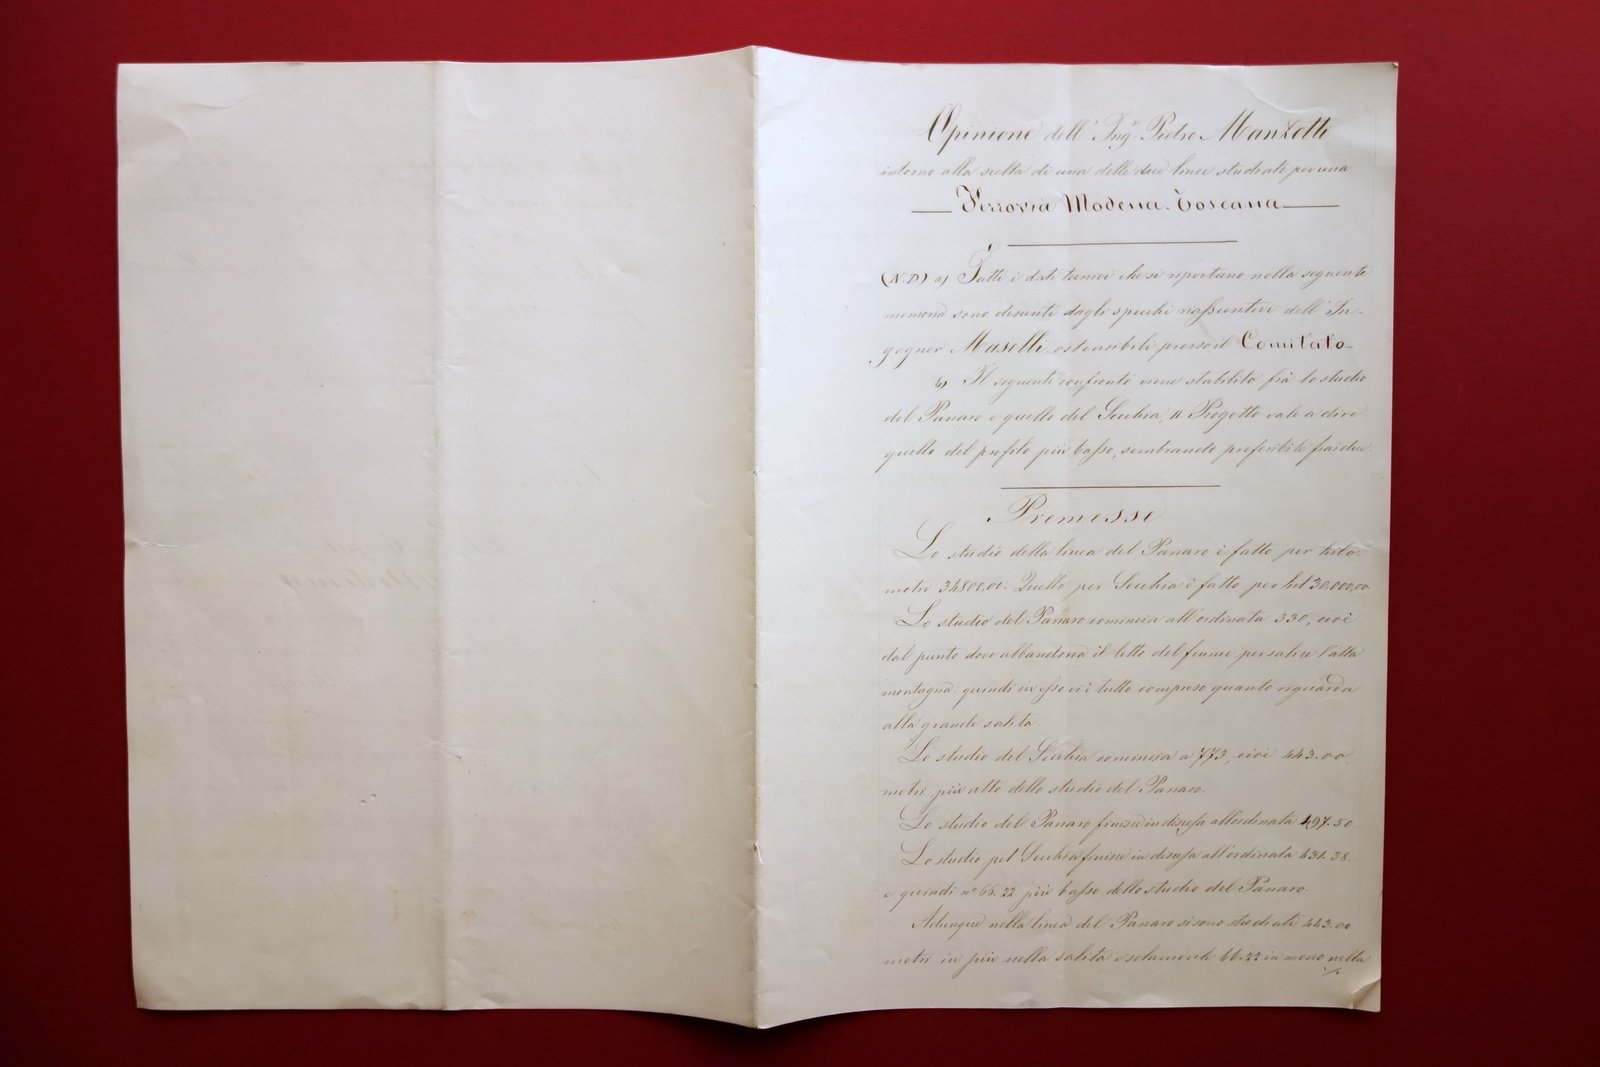 Opinione dell' Ing.e Pietro Manzotti
intorno alla scelta di una delle due linee studiate per una
Ferrovia Modena-Toscana
(N.B) a) Tutti i dati tecnici che si riportano nella seguente
memoria sono desunti dagli specchi riassuntivi dell' In-
gegner Maselli ostensibili presso il Comitato
b) Il seguente confronto viene stabilito frà lo studio
del Panaro e quello del Secchia, II Progetto vale a dire
quello del profilo più basso, sembrando preferibile frai due.
Premesse
Lo studio della linea del Panaro è fatto per kilo-
metri 34800,00. Quello per Secchia è fatto per kil 30.000,00
Lo studio del Panaro comincia all' ordinata 330, cioè
dal punto dove abbandona il letto del fiume per salire l'alta
montagna. quindi in esso vi è tutto compreso quanto riguarda
alla grande salita.
Lo studio del Secchia comincia a 773, cioè 443.00
metri più alto dello studio del Panaro.
Lo studio del Panaro finisce in discesa all'ordinata 497.50
Lo studio pel Secchia finisce in discesa all'ordinata 431.38.
e quindi m. 66.22 più basso dello studio del Panaro.
Adunque nella linea del Panaro si sono studiati 443.00
metri in più nella salita e solamente 66.22 in meno nella